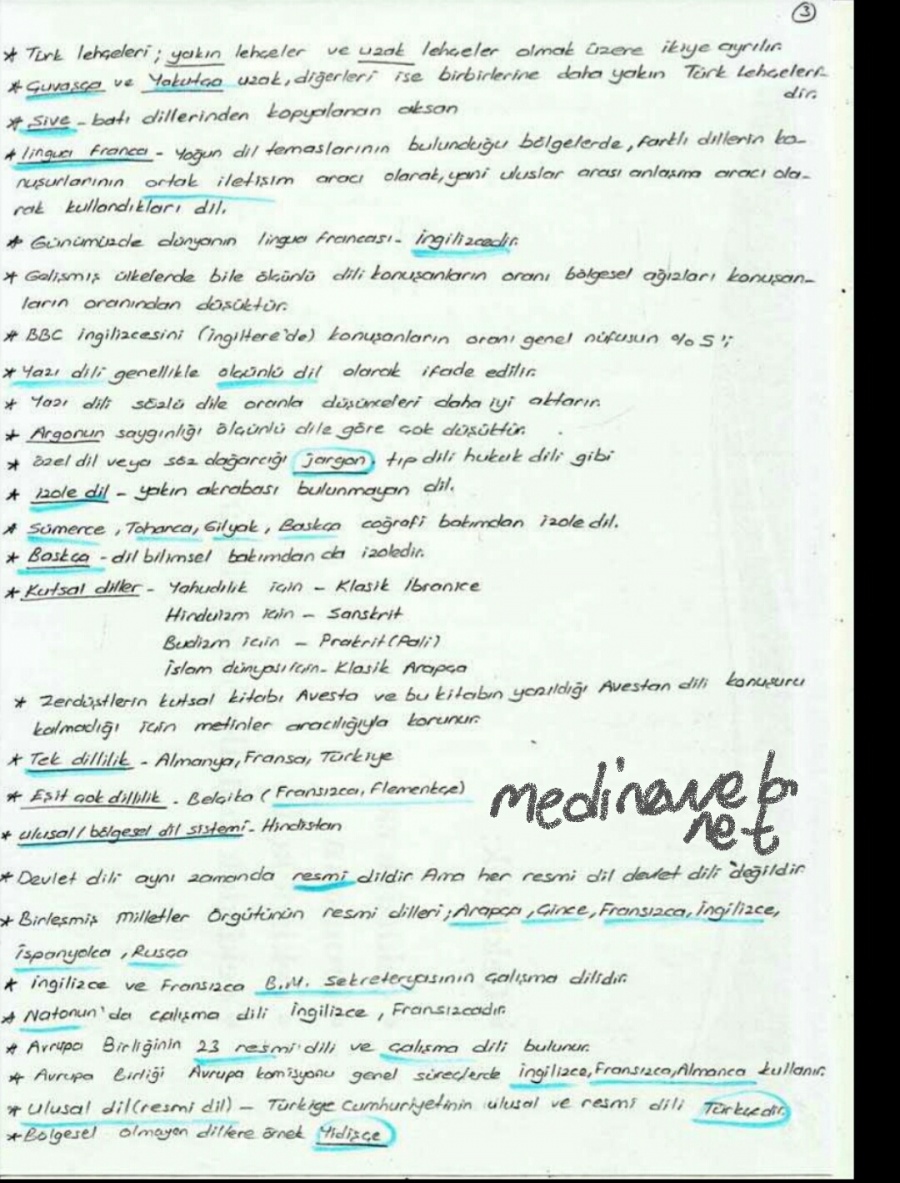 3
* Türk lehçeleri; yakın lehçeler ve uzak lehçeler olmak üzere ikiye ayrılır.
* Çuvaşça ve Yakutça uzak, diğerleri ise birbirlerine daha yakın Türk Lehçeleri-
dir.
* Şive - batı dillerinden kopyalanan aksan
* lingua franca - Yoğun dil temaslarının bulunduğu bölgelerde, farklı dillerin ko-
nuşurlarının ortak iletişim aracı olarak, yani uluslar arası anlaşma aracı ola-
rak kullandıkları dil.
* Günümüzde dünyanın lingua francası - İngilizcedir.
* Gelişmiş ülkelerde bile ölçünlü dili konuşanların oranı bölgesel ağızları konuşan-
ların oranından düşüktür.
* BBC ingilizcesini (İngiltere'de) konuşanların oranı genel nüfusun %5'i
* Yazı dili genellikle ölçünlü dil olarak ifade edilir.
* Yazı dili sözlü dile oranla düşünceleri daha iyi aktarır.
* Argonun saygınlığı ölçünlü dile göre çok düşüktür.
* özel dil veya söz dağarcığı jargon. tıp dili hukuk dili gibi
* izole dil - yakın akrabası bulunmayan dil.
* Sümerce, Toharca, Gilyak, Baskça coğrafi bakımdan izole dil.
* Baskça - dil bilimsel bakımdan da izoledir.
* Kutsal diller - Yahudilik için - Klasik İbranice
Hinduizm için - Sanskrit
Budizm için - Prakrit (Pali)
İslam dünyası için - Klasik Arapça
* Zerdüştlerin kutsal kitabı Avesta ve bu kitabın yazıldığı Avestan dili konuşuru
kalmadığı için metinler aracılığıyla korunur.
* Tek dillilik - Almanya, Fransa, Türkiye
* Eşit çok dillilik - Belçika (Fransızca, Flemenkçe)
medinaweb
net
* ulusal / bölgesel dil sistemi - Hindistan
* Devlet dili aynı zamanda resmi dildir. Ama her resmi dil devlet dili değildir.
* Birleşmiş Milletler Örgütünün resmi dilleri; Arapça, Çince, Fransızca, İngilizce,
İspanyolca, Rusça
* İngilizce ve Fransızca B.M. sekreteryasının çalışma dilidir.
* Natonun'da çalışma dili İngilizce, Fransızcadır.
* Avrupa Birliğinin 23 resmi dili ve çalışma dili bulunur.
* Avrupa Birliği Avrupa komisyonu genel süreçlerde ingilizce, Fransızca, Almanca kullanır.
* Ulusal dil (resmi dil) - Türkiye Cumhuriyetinin ulusal ve resmi dili Türkçedir.
* Bölgesel olmayan dillere örnek Yidişçe